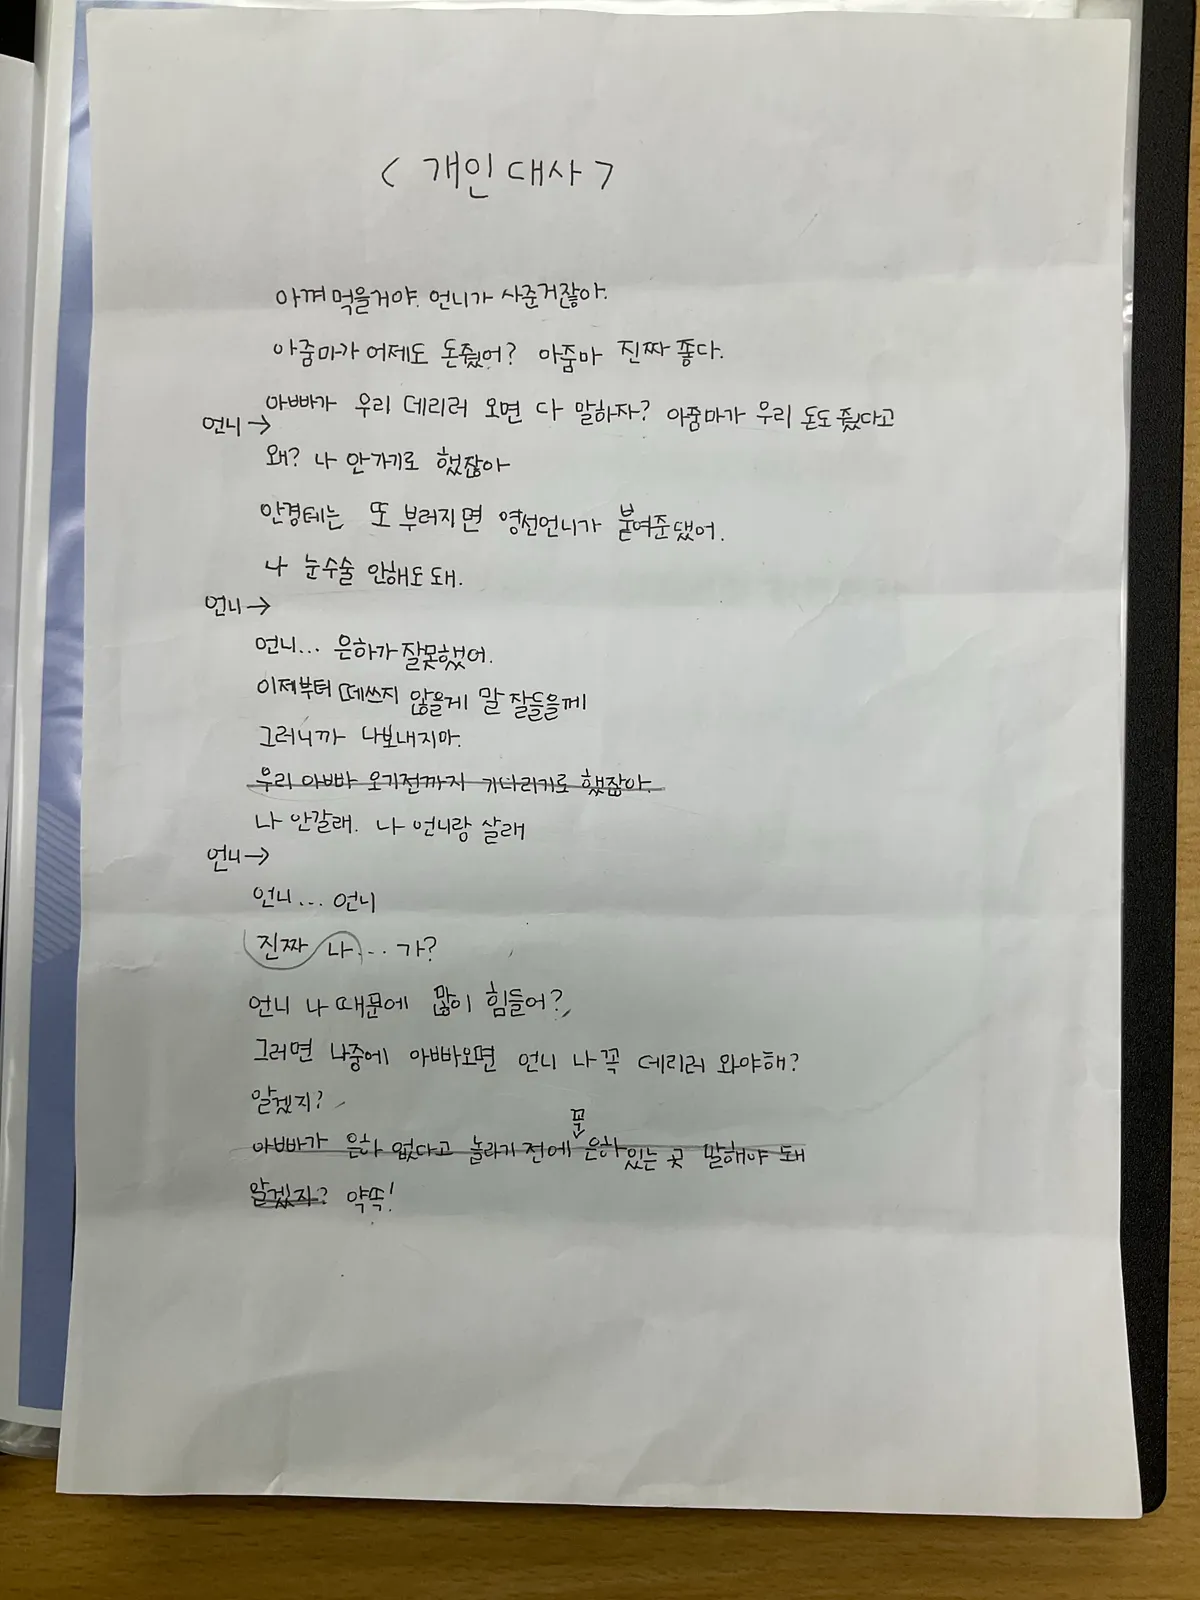 < 개인 대사 >
아껴 먹을거야. 언니가 사준거잖아.
아줌마가 어제도 돈줬어? 아줌마 진짜 좋다.
아빠가 우리 데리러 오면 다 말하자? 아줌마가 우리 돈도 줬다고
언니→
왜? 나 안가기로 했잖아
안경테는 또 부러지면 영선언니가 붙여준댔어.
나 눈수술 안해도 돼.
언니→
언니... 은하가 잘못했어.
이제부터 떼쓰지 않을게 말 잘들을께
그러니까 나보내지마.
우리 아빠 오기전까지 기다리기로 했잖아.
나 안갈래. 나 언니랑 살래
언니→
언니... 언니
진짜 나... 가?
언니 나 때문에 많이 힘들어?
그러면 나중에 아빠오면 언니 나 꼭 데리러 와야해?
알겠지?
꼭
아빠가 은하 없다고 놀라기 전에 은하 있는 곳 말해야 돼
알겠지? 약똑!